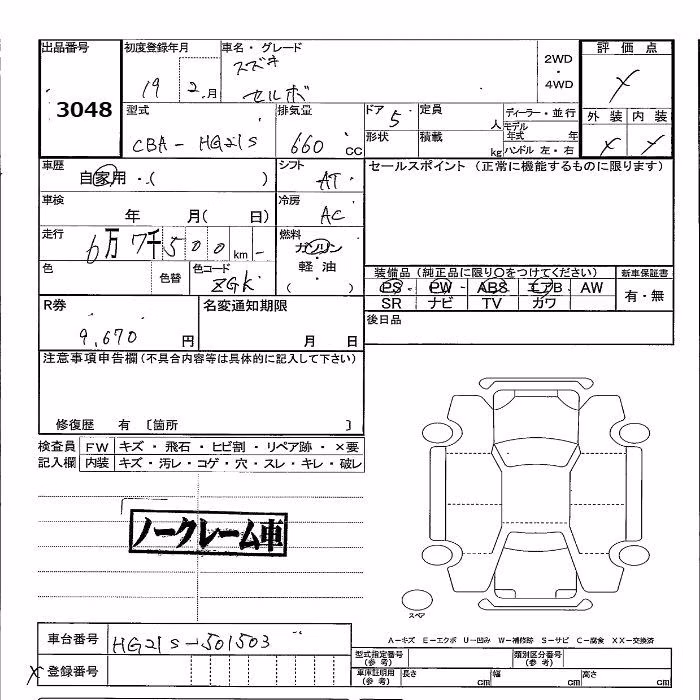 出品番号 初度登録年月 車名・グレード 2WD・4WD 評価点
3048 19 2 月 スズキ セルボ ×
型式 排気量 ドア 5 定員 人 ディーラー・並行 外装 内装
CBA-HG21S 660 cc 形状 積載 kg モデル年式 年 ハンドル 左・右 × ×
車歴 自家用・( ) シフト AT セールスポイント(正常に機能するものに限ります)
車検 年 月( 日) 冷房 AC
走行 6万7千500 km - 燃料 ガソリン・軽・油 ( )
色 色替 色コード ZGK 装備品(純正品に限り○をつけてください) 新車保証書
PS PW ABS エアB AW 有・無
SR ナビ TV ガワ
R券 9,670 円 名変通知期限 月 日 後日品
注意事項申告欄(不具合内容等は具体的に記入して下さい)
修復歴 有 〔箇所 〕
検査員 FW キズ・飛石・ヒビ割・リペア跡・×要
記入欄 内装 キズ・汚レ・コゲ・穴・スレ・キレ・破レ
ノークレーム車
スペア
A-キズ E-エクボ U-凹み W-補修跡 S-サビ C-腐食 XX-交換済
車台番号 HG21S-501503 型式指定番号(参考) 類別区分番号(参考)
× 登録番号 車庫証明用(参考) 長さ cm 幅 cm 高さ cm